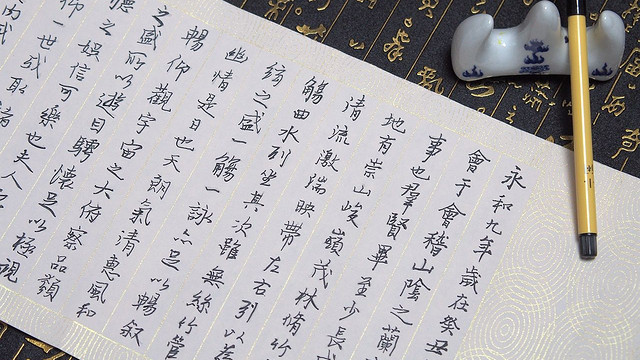 永和九年歲在癸丑
會于會稽山陰之蘭
事也羣賢畢至少長
地有崇山峻嶺茂林脩竹
清流激湍映帶左右引以為
觴曲水列坐其次雖無絲竹管
絃之盛一觴一詠亦足以暢叙
幽情是日也天朗氣清惠風和
暢仰觀宇宙之大俯察品類
之盛所以遊目騁懷足以極視
聽之娛信可樂也夫人
仰一世或取諸